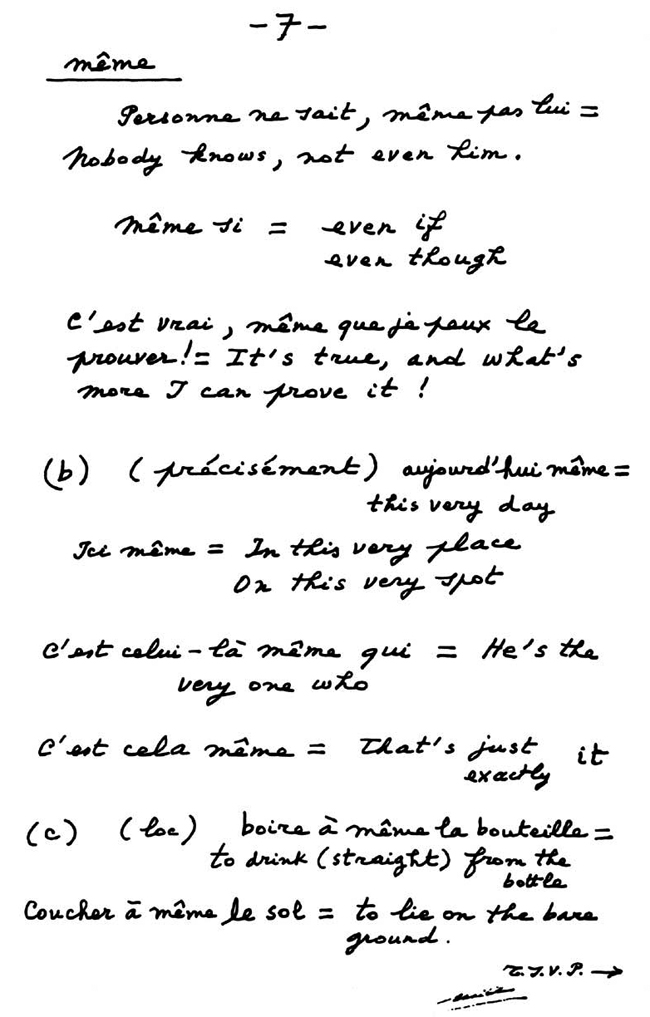 -7-
même
Personne ne sait, même pas lui =
Nobody knows, not even him.
même si = even if
even though
C'est vrai, même que je peux le
prouver! = It's true, and what's
more I can prove it !
(b) (précisément) aujourd'hui même =
this very day
Ici même = In this very place
On this very spot
C'est celui-là même qui = He's the
very one who
C'est cela même = That's just it
exactly
(c) (loc) boire à même la bouteille =
to drink (straight) from the
bottle
Coucher à même le sol = to lie on the bare
ground.
T.S.V.P. →